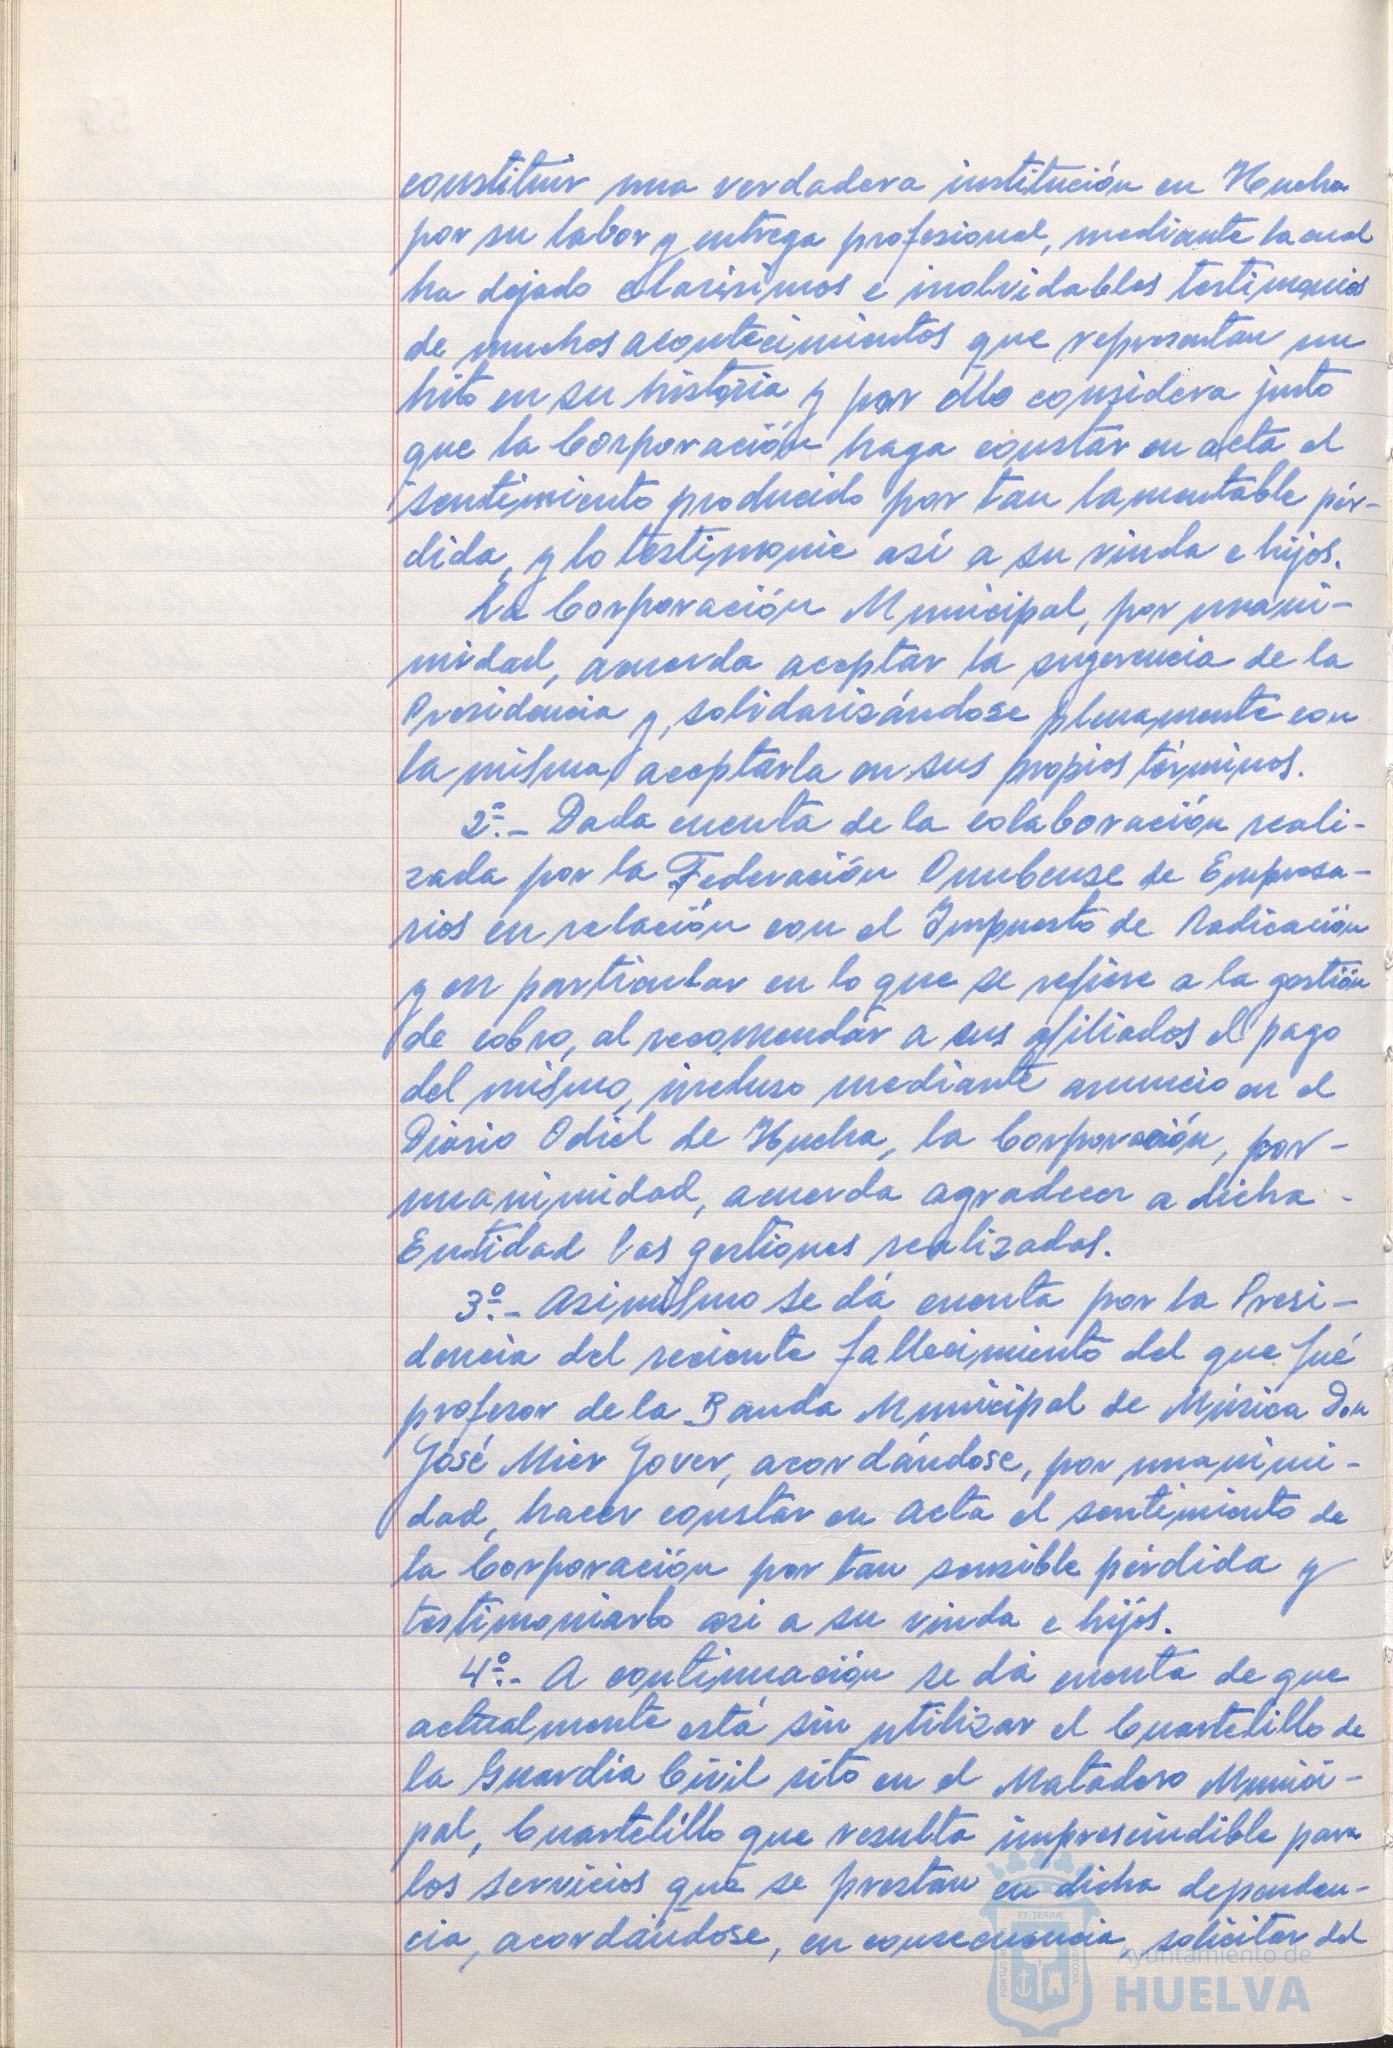 constituir una verdadera institución en Huelva
por su labor y entrega profesional, mediante la cual
ha dejado clarísimos e inolvidables testimonios
de muchos acontecimientos que representan un
hito en su historia y por ello considera justo
que la Corporación haga constar en acta el
sentimiento producido por tan lamentable pér-
dida, y lo testimonie así a su viuda e hijos.
La Corporación Municipal, por unani-
midad, acuerda aceptar la sugerencia de la
Presidencia y, solidarizándose plenamente con
la misma, aceptarla en sus propios términos.
2º.- Dada cuenta de la colaboración reali-
zada por la Federación Onubense de Empresa-
rios en relación con el Impuesto de Radicación
y en particular en lo que se refiere a la gestión
de cobro, al recomendar a sus afiliados el pago
del mismo, incluso mediante anuncio en el
Diario Odiel de Huelva, la Corporación, por-
unanimidad, acuerda agradecer a dicha -
Entidad las gestiones realizadas.
3º.- Asimismo se dá cuenta por la Presi-
dencia del reciente fallecimiento del que fué
profesor de la Banda Municipal de Música Don
José Mier Jover, acordándose, por unanimi-
dad, hacer constar en acta el sentimiento de
la Corporación por tan sensible pérdida y
testimoniarlo asi a su viuda e hijos.
4º.- A continuación se dá cuenta de que
actualmente está sin utilizar el Cuartelillo de
la Guardia Civil sito en el Matadero Munici-
pal, Cuartelillo que resulta imprescindible para
los servicios que se prestan en dicha dependen-
cia, acordándose, en consecuencia, solicitar del
Ayuntamiento de
HUELVA